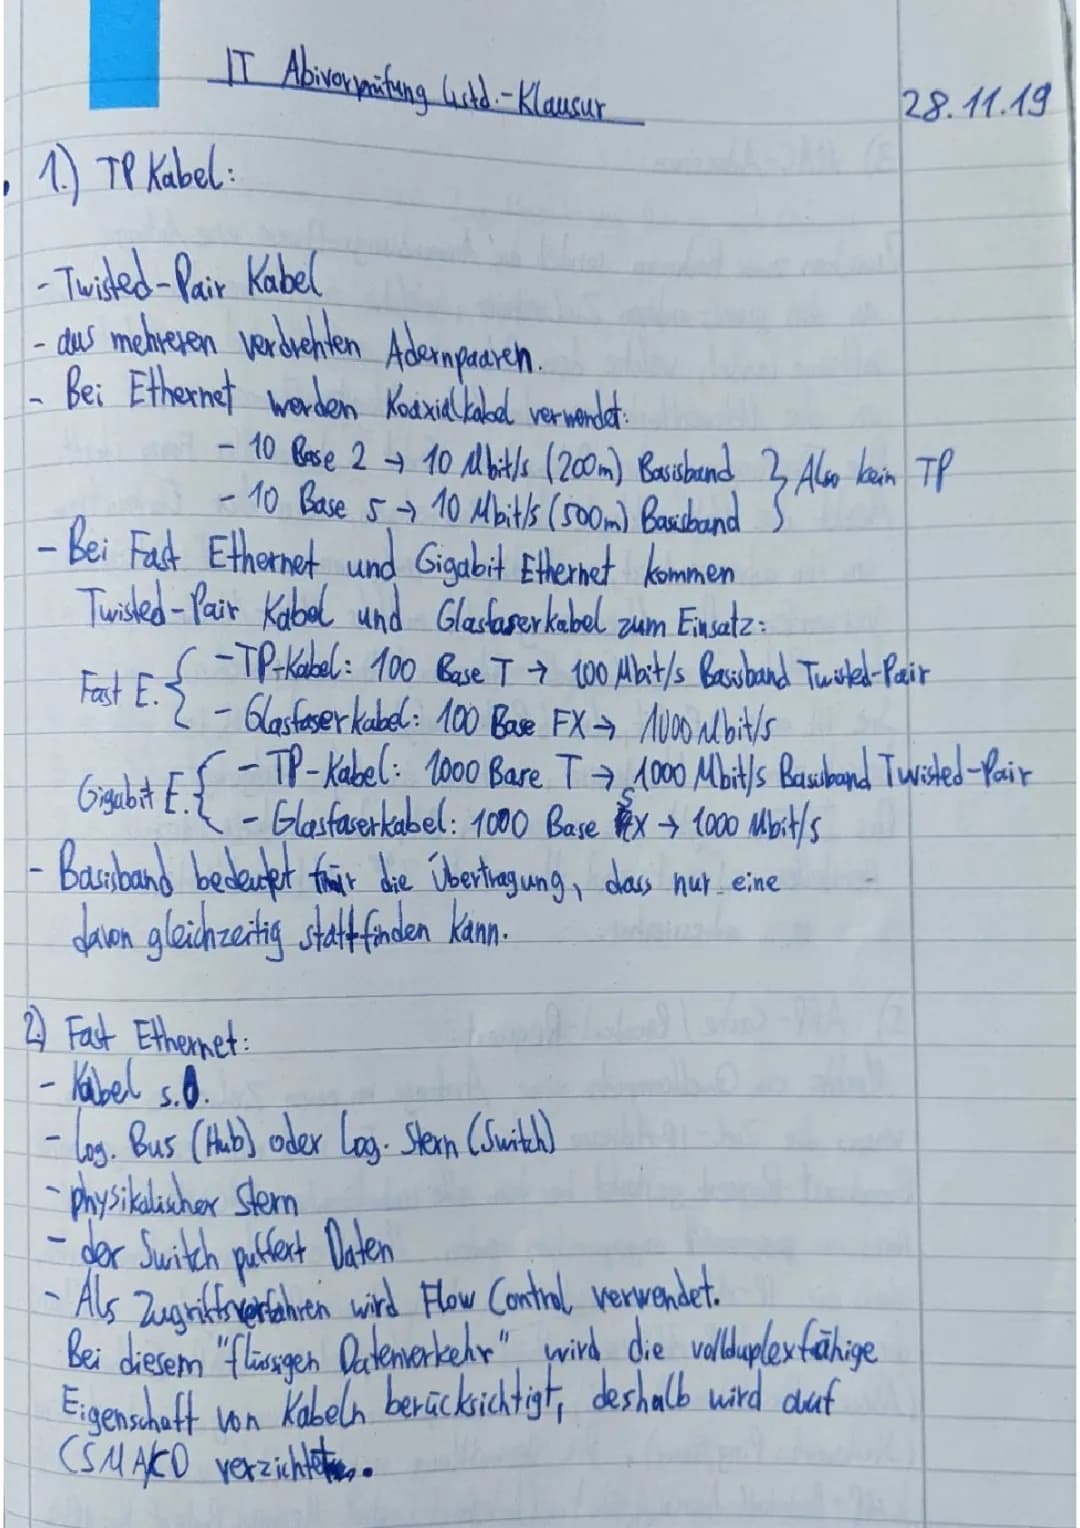 IT Abivorprüfung 4std.-Klausur
28.11.19
1.) TP Kabel:
- Twisted-Pair Kabel
- aus mehreren verdrehten Adernpaaren.
- Bei Ethernet werden Koaxialkabel verwendet:
- 10 Base 2 → 10 Mbit/s (200m) Basisband } Also kein TP
- 10 Base 5 → 10 Mbit/s (500m) Basisband
- Bei Fast Ethernet und Gigabit Ethernet kommen
Twisted-Pair Kabel und Glasfaserkabel zum Einsatz:
Fast E. { - TP-Kabel: 100 Base T → 100 Mbit/s Basisband Twisted-Pair
- Glasfaserkabel: 100 Base FX → 1000 Mbit/s
Gigabit E. { - TP-Kabel: 1000 Base T → 1000 Mbit/s Basisband Twisted-Pair
- Glasfaserkabel: 1000 Base SX → 1000 Mbit/s
- Basisband bedeutet für die Übertragung, dass nur eine
davon gleichzeitig stattfinden kann.
2) Fast Ethernet:
- Kabel s.O.
- Log. Bus (Hub) oder Log. Stern (Switch)
- physikalischer Stern
- der Switch puffert Daten
- Als Zugriffsverfahren wird Flow Control verwendet.
Bei diesem "flüssigen Datenverkehr" wird die vollduplexfähige
Eigenschaft von Kabeln berücksichtigt, deshalb wird auf
CSMA/CD verzichtet.